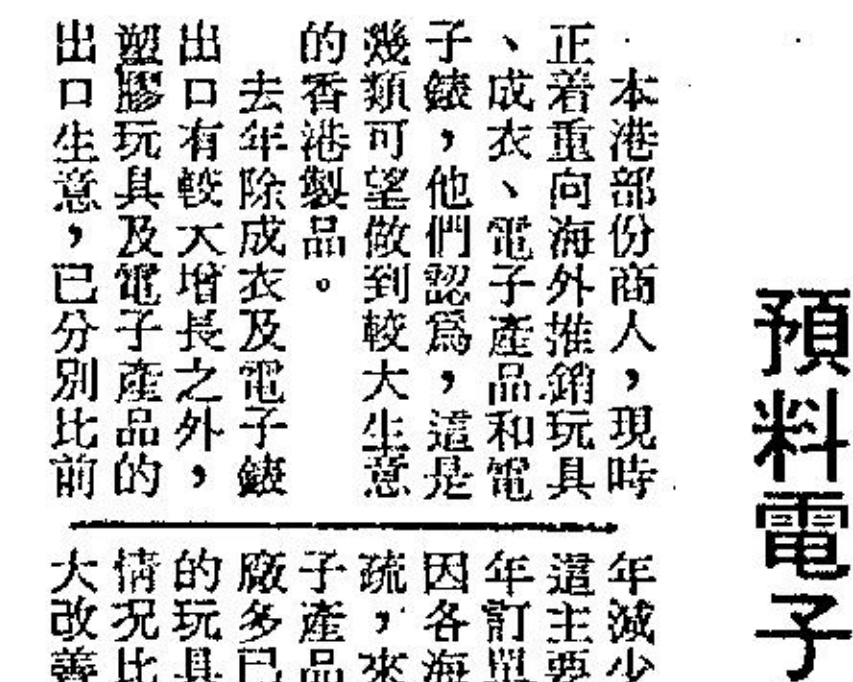 預料電子
本港部份商人，現時
正着重向海外推銷玩具
、成衣、電子產品和電
子錶，他們認爲，這是
幾類可望做到較大生意
的香港製品。
去年除成衣及電子錶
出口有較大增長之外，
塑膠玩具及電子產品的
出口生意，已分別比前
年減少
這主要
年訂單
因各海
疏，來
子產品
廠多已
的玩具
情況比
大改善